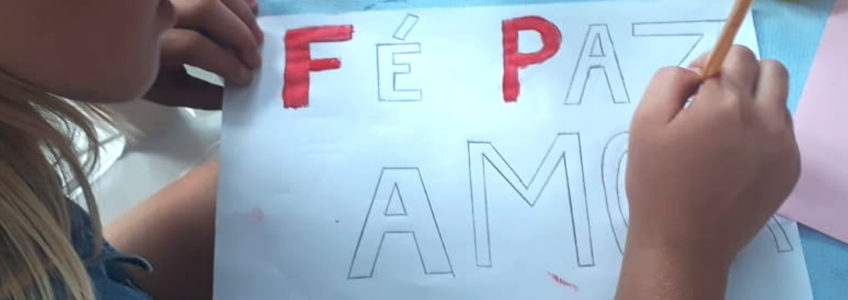 FÉ PAZ
AMOR